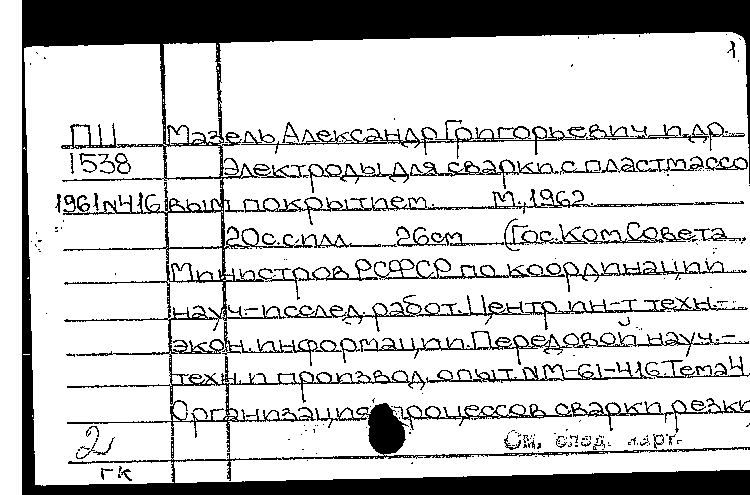 1
ПЦ Мазель, Александр Григорьевич и др.
1538 Электроды для сварки с пластмассо
1961N416 вым покрытием. М., 1962.
20с. с илл. 26см (Гос. Ком. Совета
Министров РСФСР по координации
науч-исслед. работ. Центр. ин-т техн.-
экон. информации. Передовой науч.-
техн. и производ. опыт. NМ-61-416. Тема 4
Организация процессов сварки, резки
2 См. след. карт.
ГК